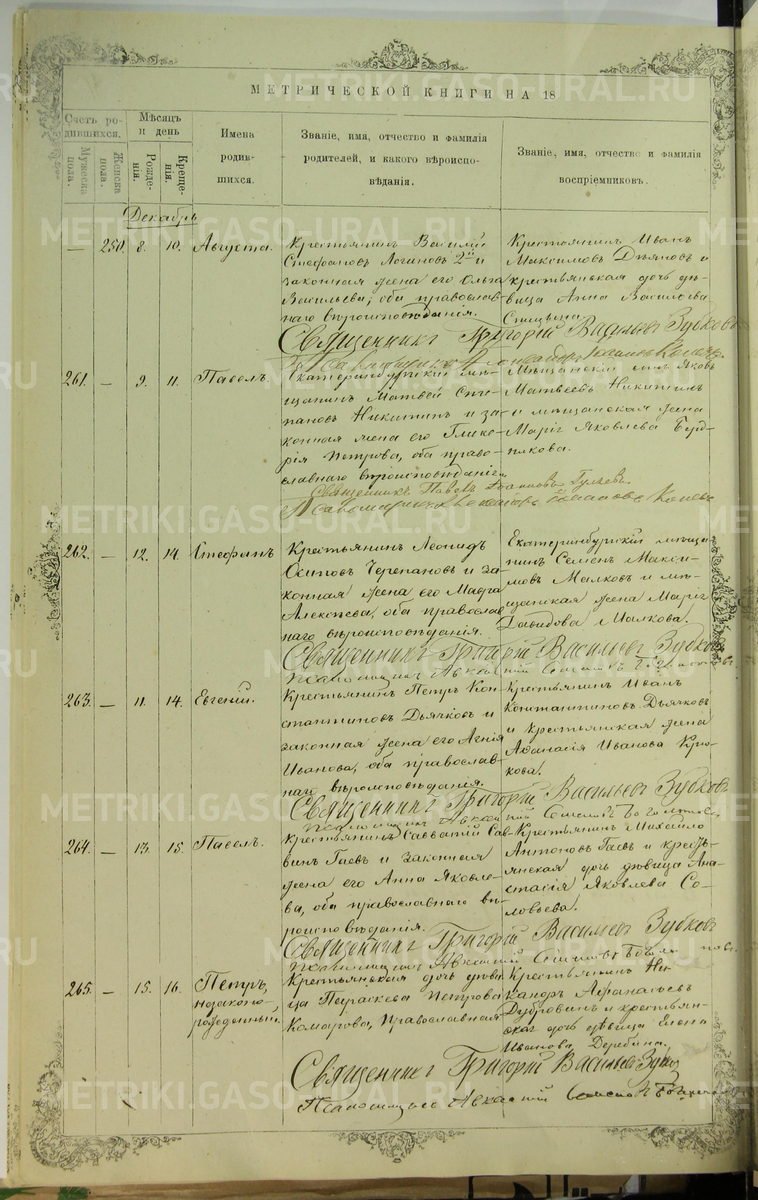 МЕТРИЧЕСКОЙ КНИГИ НА 18
Счетъ родившихся.
Мужеска пола.
Женска пола.
Мѣсяцъ и день
Рожденія.
Крещенія.
Имена родившихся.
Званіе, имя, отчество и фамилія родителей, и какого вѣроисповѣданія.
Званіе, имя, отчество и фамилія воспріемниковъ.
Декабрь
— 250. 8. 10. Августа.
Крестьянинъ Василій
Стефановъ Логиновъ 2й и
законная жена его Ольга
Васильева, оба православнаго
вѣроисповѣданія.
Крестьянинъ Иванъ
Максимовъ и
крестьянская дочь дѣвица
Анна Васильева
Священникъ Григорій Васильевъ Зубковъ
261. — 9. 11. Павелъ.
Екатеринбургскій мѣщанинъ
Матвей Степановъ
Никитинъ и законная
жена его Гликерія
Петрова, оба православнаго
вѣроисповѣданія
Мѣщанскій сынъ Яковъ
Матвеевъ Никитинъ
и мѣщанская жена
Марія Яковлева
Священникъ Павелъ Іоанновъ
262. — 12. 14. Стефанъ
Крестьянинъ Леонидъ
Осиповъ Черепановъ и законная
жена его Мавра
Алексѣева, оба православнаго
вѣроисповѣданія.
Екатеринбургскій мѣщанинъ
Семенъ Максимовъ
Малковъ и мѣщанская
жена Марія
Давыдова Малкова.
Священникъ Григорій Васильевъ Зубковъ
263. — 11. 14. Евгеній.
Крестьянинъ Петръ Константиновъ
Дьячковъ и
законная жена его Агнія
Иванова, оба православнаго
вѣроисповѣданія.
Крестьянинъ Иванъ
Константиновъ Дьячковъ
и крестьянская жена
Афанасія Иванова Крюкова.
Священникъ Григорій Васильевъ Зубковъ
264. — 13. 15. Павелъ.
Крестьянинъ Савватій Саввинъ
Гаевъ и законная
жена его Анна Яковлева,
оба православнаго вѣроисповѣданія.
Крестьянинъ Михайло
Антоновъ Гаевъ и крестьянская
дочь дѣвица Анастасія
Яковлева Соловьева.
Священникъ Григорій Васильевъ Зубковъ
265. — 15. 16. Петръ,
незаконнорожденный.
Крестьянская дочь дѣвица
Параскева Петрова
Комарова, православная
Крестьянинъ Никандръ
Афанасьевъ
Дубровинъ и крестьянская
дочь дѣвица Елена
Иванова Дерябина.
Священникъ Григорій Васильевъ Зубковъ
METRIKI.GASO-URAL.RU